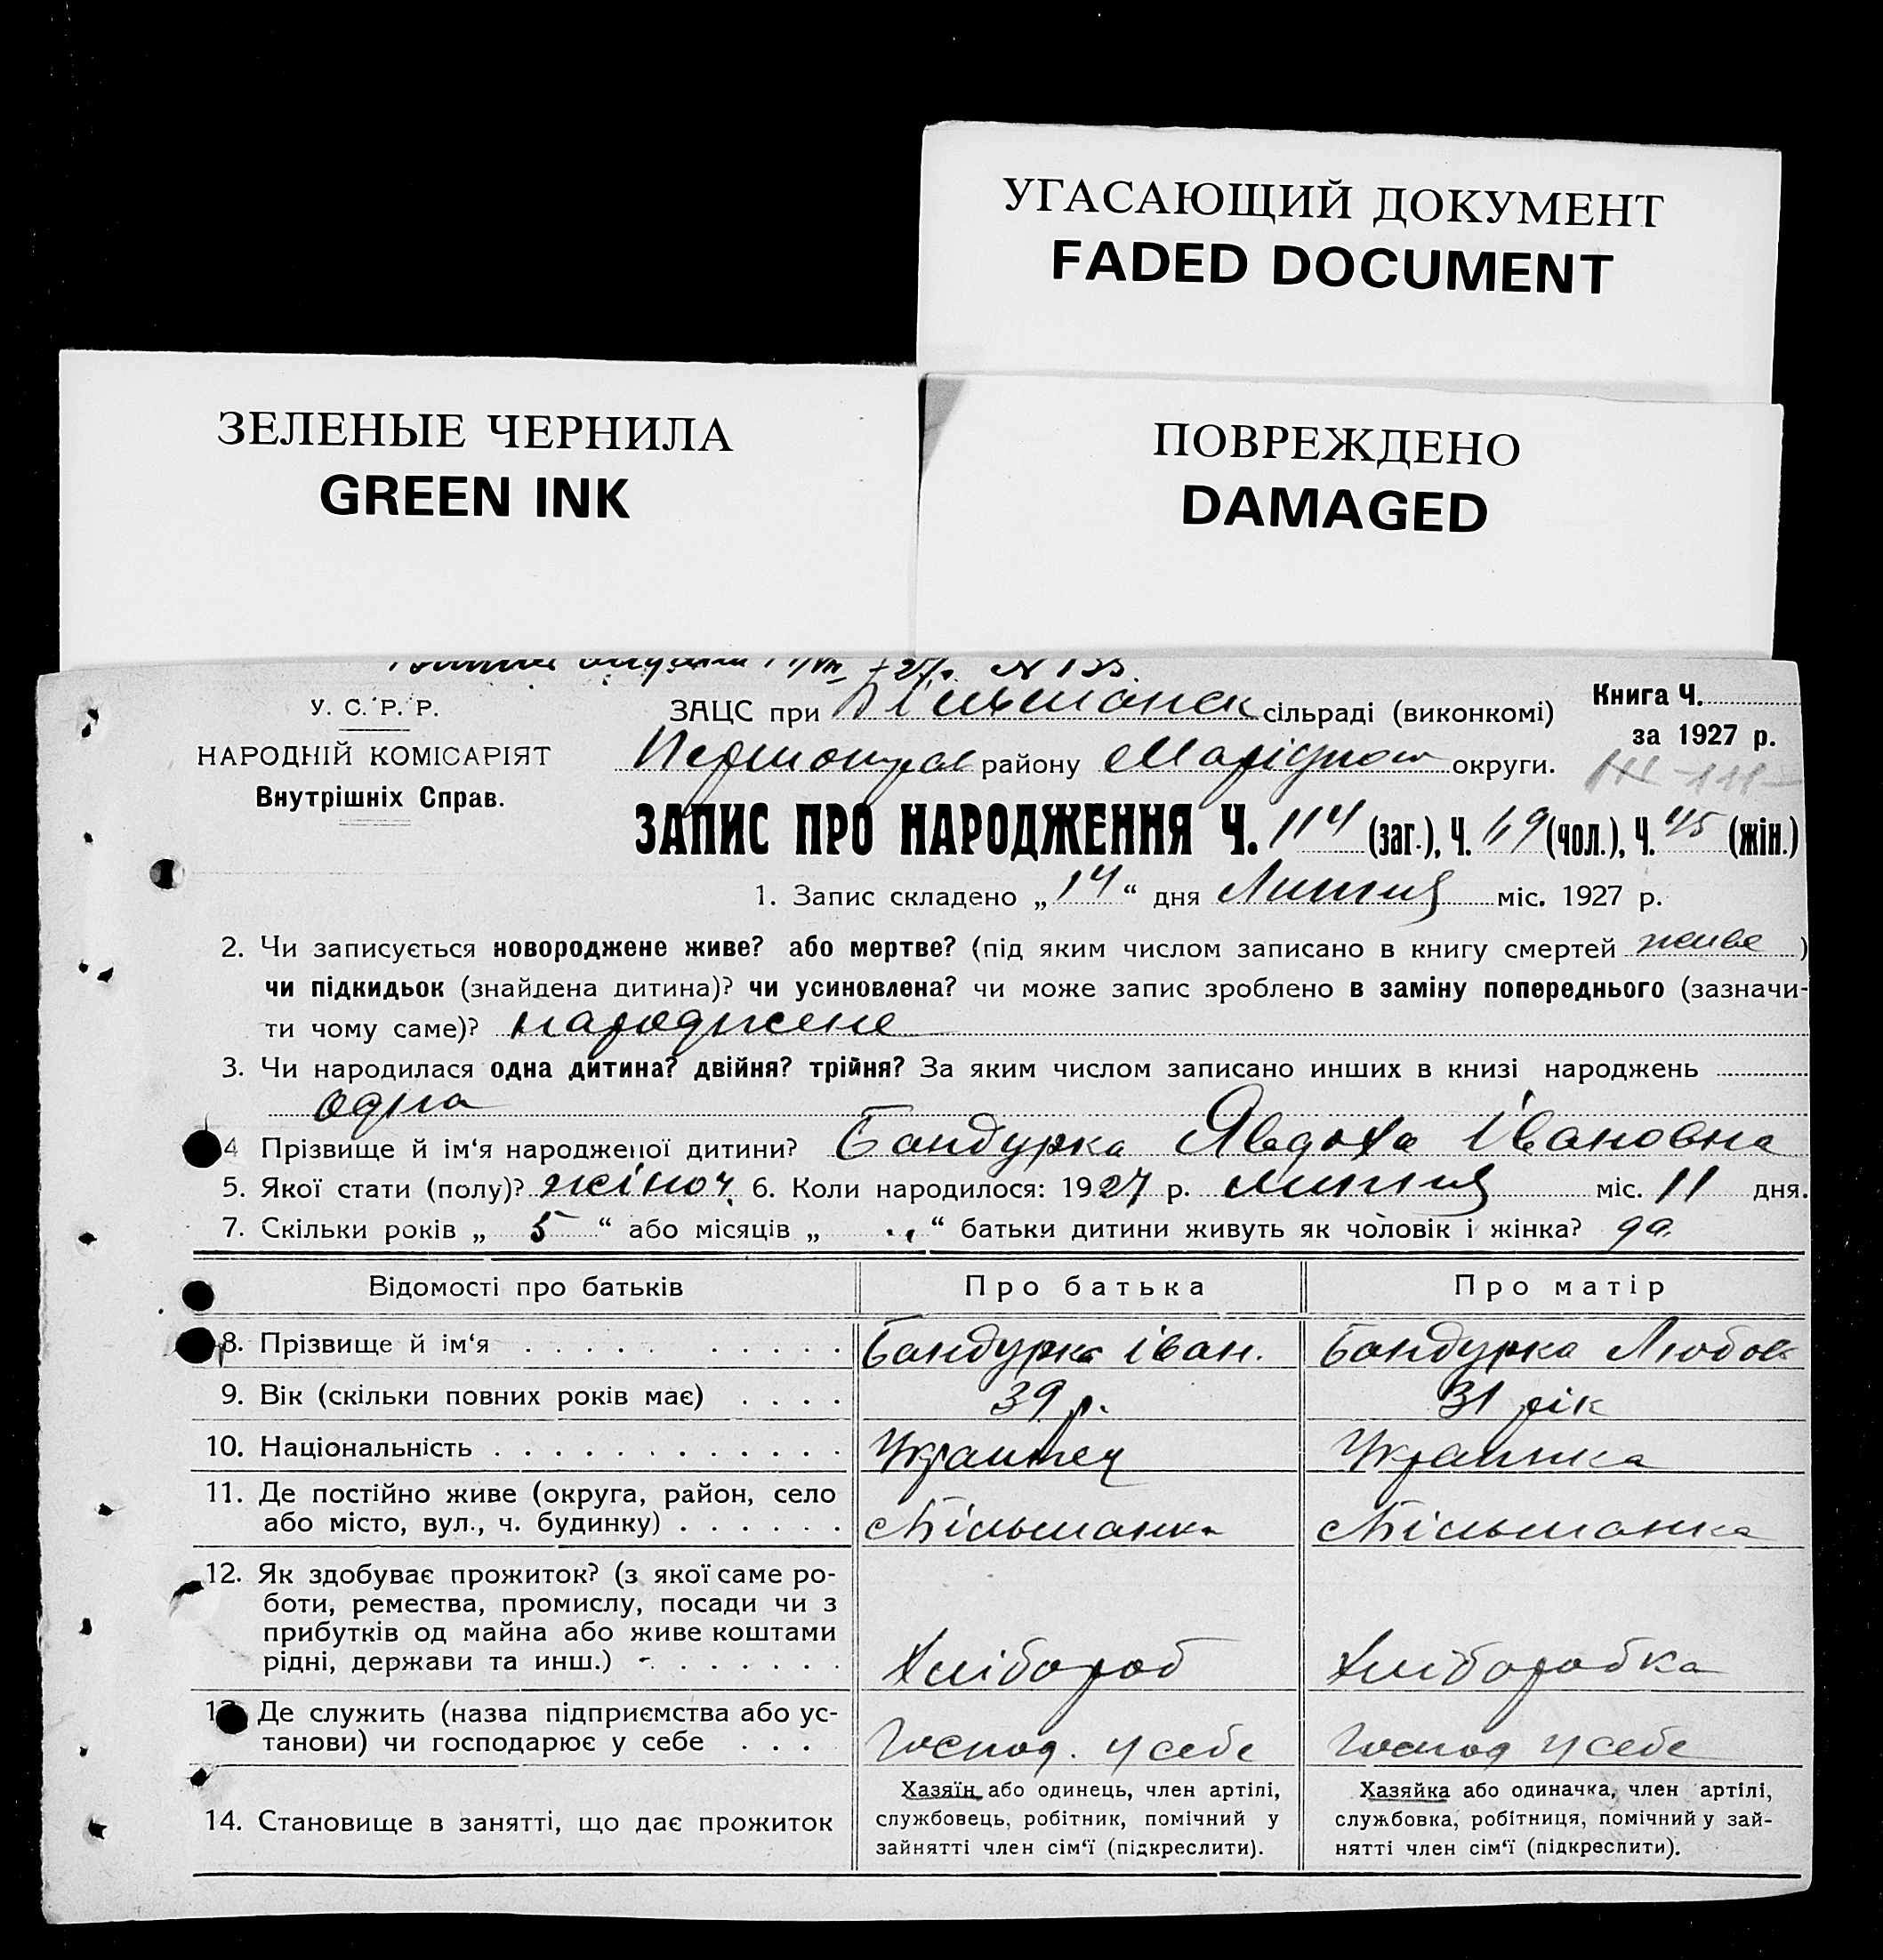 УГАСАЮЩИЙ ДОКУМЕНТ
FADED DOCUMENT
ЗЕЛЕНЫЕ ЧЕРНИЛА
GREEN INK
ПОВРЕЖДЕНО
DAMAGED
№ 133.
У. С. Р. Р.
НАРОДНІЙ КОМІСАРІЯТ
Внутрішніх Справ.
ЗАЦС при Вільшанск сільраді (виконкомі)
района Маріупол округи.
Книга Ч.
за 1927 р.
ЗАПИС ПРО НАРОДЖЕННЯ Ч. 114 (заг.), Ч. 69 (чол.), Ч. 45 (жін.)
1. Запис складено „ 14 “ дня Липня міс. 1927 р.
2. Чи записується новороджене живе? або мертве? (під яким числом записано в книгу смертей живе )
чи підкидьок (знайдена дитина)? чи усиновлена? чи може запис зроблено в заміну попереднього (зазначи-
ти чому саме)? народжене
3. Чи народилася одна дитина? двійня? трійня? За яким числом записано инших в книзі народжень
одна
4 Прізвище й ім‘я народженої дитини? Бандурка Явдоха Івановна
5. Якої стати (полу)? жіноч. 6. Коли народилося: 1927 р. липня міс. 11 дня.
7. Скільки років „ 5 “ або місяців „ “ батьки дитини живуть як чоловік і жінка? да
Відомості про батьків
Про батька
Про матір
8. Прізвище й ім‘я
Бандурка Іван.
Бандурка Любов
9. Вік (скільки повних років має)
39 р.
31 рік
10. Національність
Українец
Українка
11. Де постійно живе (округа, район, село
або місто, вул., ч. будинку)
Вільшанка
Вільшанка
12. Як здобуває прожиток? (з якої саме ро-
боти, ремества, промислу, посади чи з
прибутків од майна або живе коштами
рідні, держави та инш.)
Хлібороб
Хліборобка
Де служить (назва підприємства або ус-
танови) чи господарює у себе
Господ. у себе
Господ у себе
14. Становище в занятті, що дає прожиток
Хазяїн або одинець, член артілі,
службовець, робітник, помічний у
зайнятті член сім‘ї (підкреслити).
Хазяйка або одиначка, член артілі,
службовка, робітниця, помічний у зай-
нятті член сім‘ї (підкреслити).